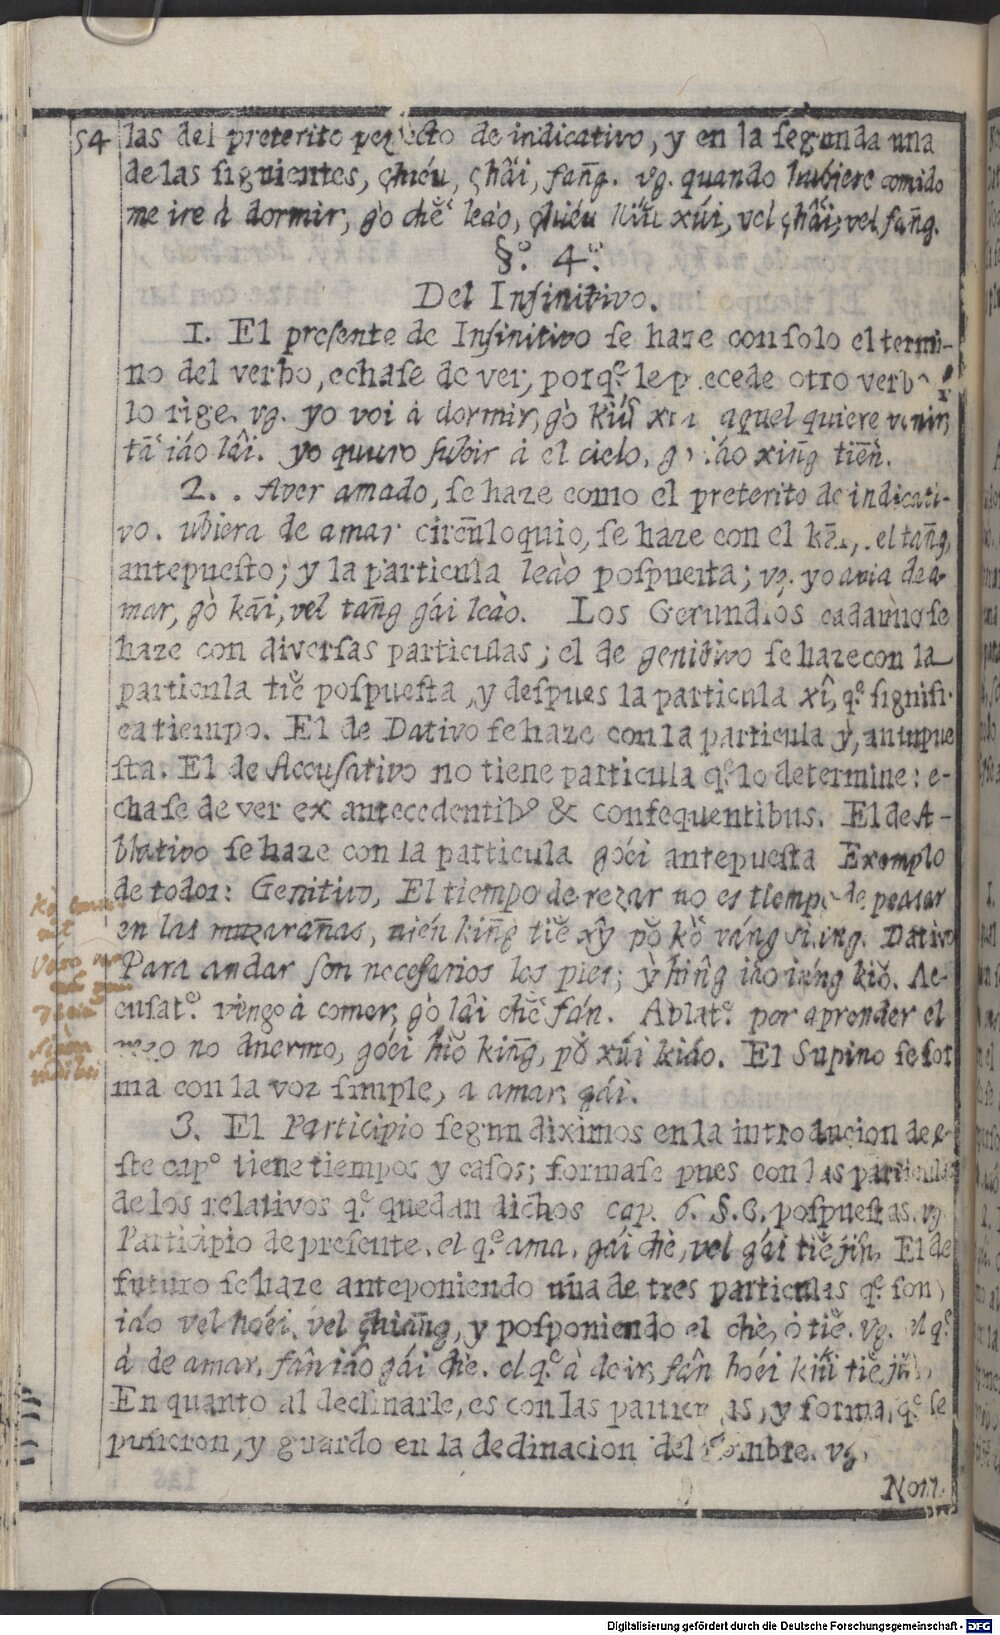 54 las del preterito perfecto de indicativo, y en la segunda una
de las siguientes, çhiéu, çhâi, fañg. vg. quando hubiere comido
me ire à dormir, gò chĕ leào, çhiéu kiǘ xúi, vel çhâi, vel fañg.
§º. 4º.
Del Infinitivo.
1. El presente de Infinitivo se haze con solo el termi-
no del verbo, echase de ver, porq.e le precede otro verbo
lo rige. vg. yo voi à dormir, gò kiú aquel quiere venir,
tā iáo lâi. yo quiero subir à el cielo, iáo xiñg tiēn.
2.. Aver amado, se haze como el preterito de indicati-
vo. ubiera de amar circūloquio, se haze con el el tañg,
antepuesto; y la particula leào pospuesta; vg. yo avia de a-
mar, gò kāi, vel tañg gái leào. Los Gerundios cada uno se
haze con diversas particulas; el de genitivo se haze con la
particula tiĕ pospuesta, y despues la particula xî, q.e signifi-
ca tiempo. El de Dativo se haze con la particula ỳ, antepue
sta. El de Accusativo no tiene particula q.e lo determine: e-
chase de ver ex antecedentibº & consequentibus. El de A-
blativo se haze con la particula goéi antepuesta Exemplo
de todos: Genitivo, El tiempo de rezar no es tiempo de pensar
en las muzarañas, nién kiñg tiĕ xŷ pŏ kŏ váng siàng. Dativo
Para andar son necesarios los pies; ỳ hiñg iáo iúng kiŏ. Ac-
cusat.º vengo à comer, gò lâi chĕ fán. Ablat.º por aprender el
rezo no duermo, goéi hiŏ kiñg, pŏ xúi kiáo. El Supino se for
ma con la voz simple, a amar, gái.
3. El Participio segun diximos en la introducion de e-
ste capº tiene tiempos y casos; formase pues con las particulas
de los relativos q.e quedan dichos cap. 6. §. pospuestas. vg
Participio de presente. el q.e ama. gái chè, vel gái tiĕ jîn. El de
futuro se haze anteponiendo una de tres particulas q.e son
iáo vel hoéi, vel çhiañg, y posponiendo el chè, ò tiĕ. vg. el q.e
à de amar. fân iáo gái chè. el q.e à de ir, fân hoéi kiǘ tiĕ jîn.
En quanto al declinarse, es con las particulas, y forma, q.e se
pusieron, y guardo en la declinacion del Nombre. vg.
Nom.
Digitalisierung gefördert durch die Deutsche Forschungsgemeinschaft - DFG